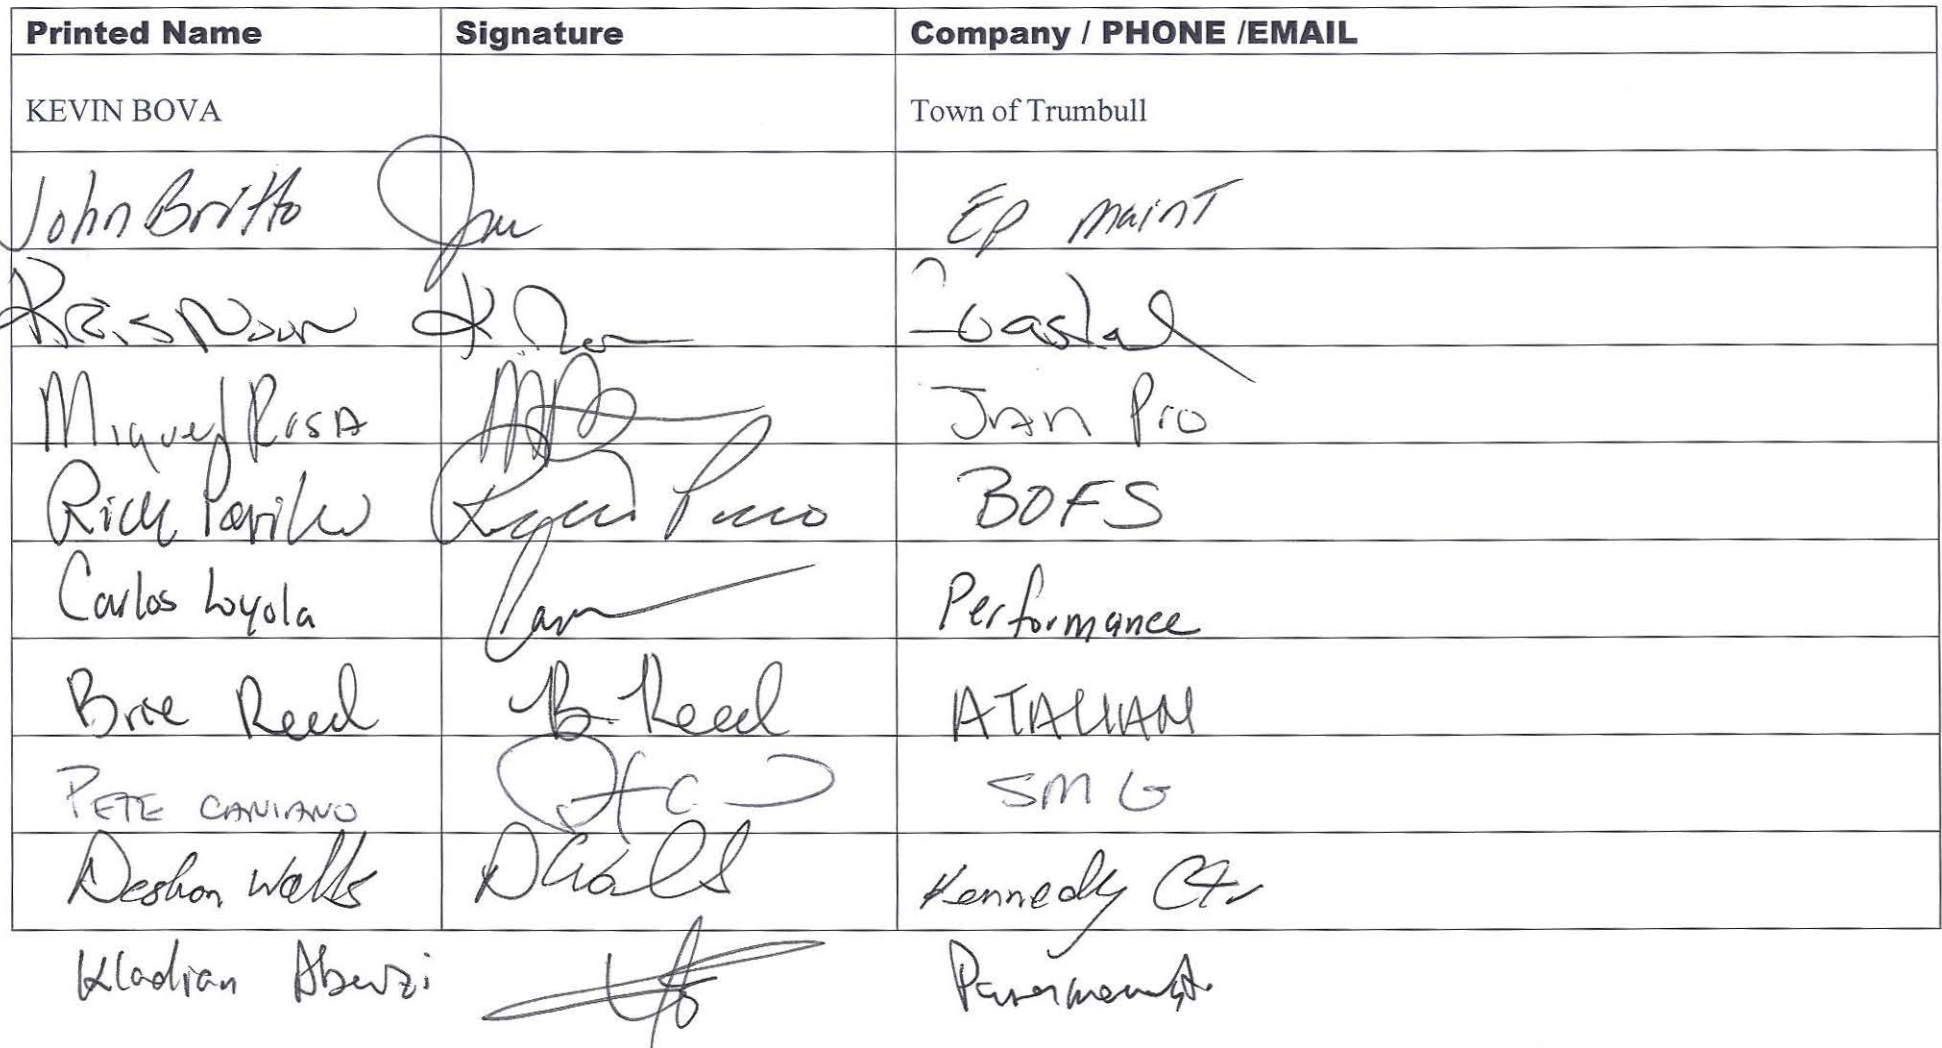 Printed Name Signature Company / PHONE /EMAIL
KEVIN BOVA Town of Trumbull
John Britto EP maint
Kris Noon K Coastal
Miguel Rosa Jan Pro
Rich BOFS
Carlos Loyola Performance
Brie Reed B Reed ATALIAN
PETE CANIANO SMG
Deshon Walls DWalls Kennedy Ctr
Kladian